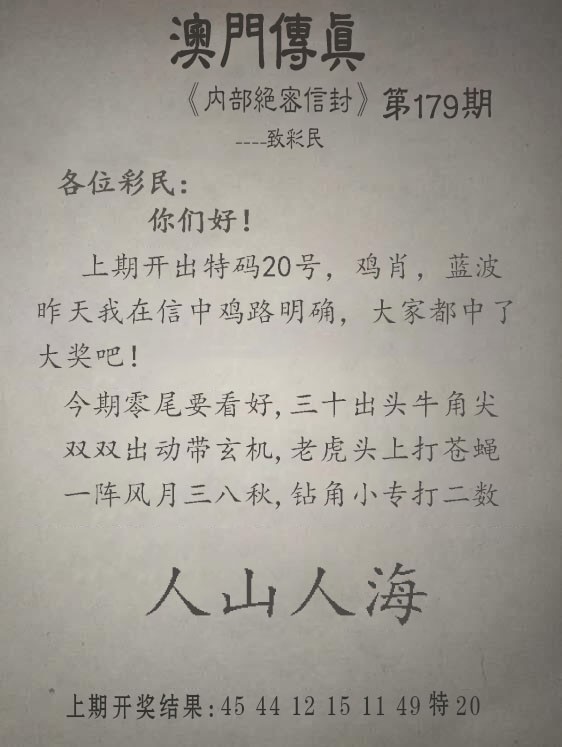 澳門傳眞
《内部絕密信封》第179期
----致彩民
各位彩民：
你们好！
上期开出特码20号，鸡肖，蓝波
昨天我在信中鸡路明确，大家都中了
大奖吧！
今期零尾要看好,三十出头牛角尖
双双出动带玄机,老虎头上打苍蝇
一阵风月三八秋,钻角小专打二数
人山人海
上期开奖结果:45 44 12 15 11 49 特 20